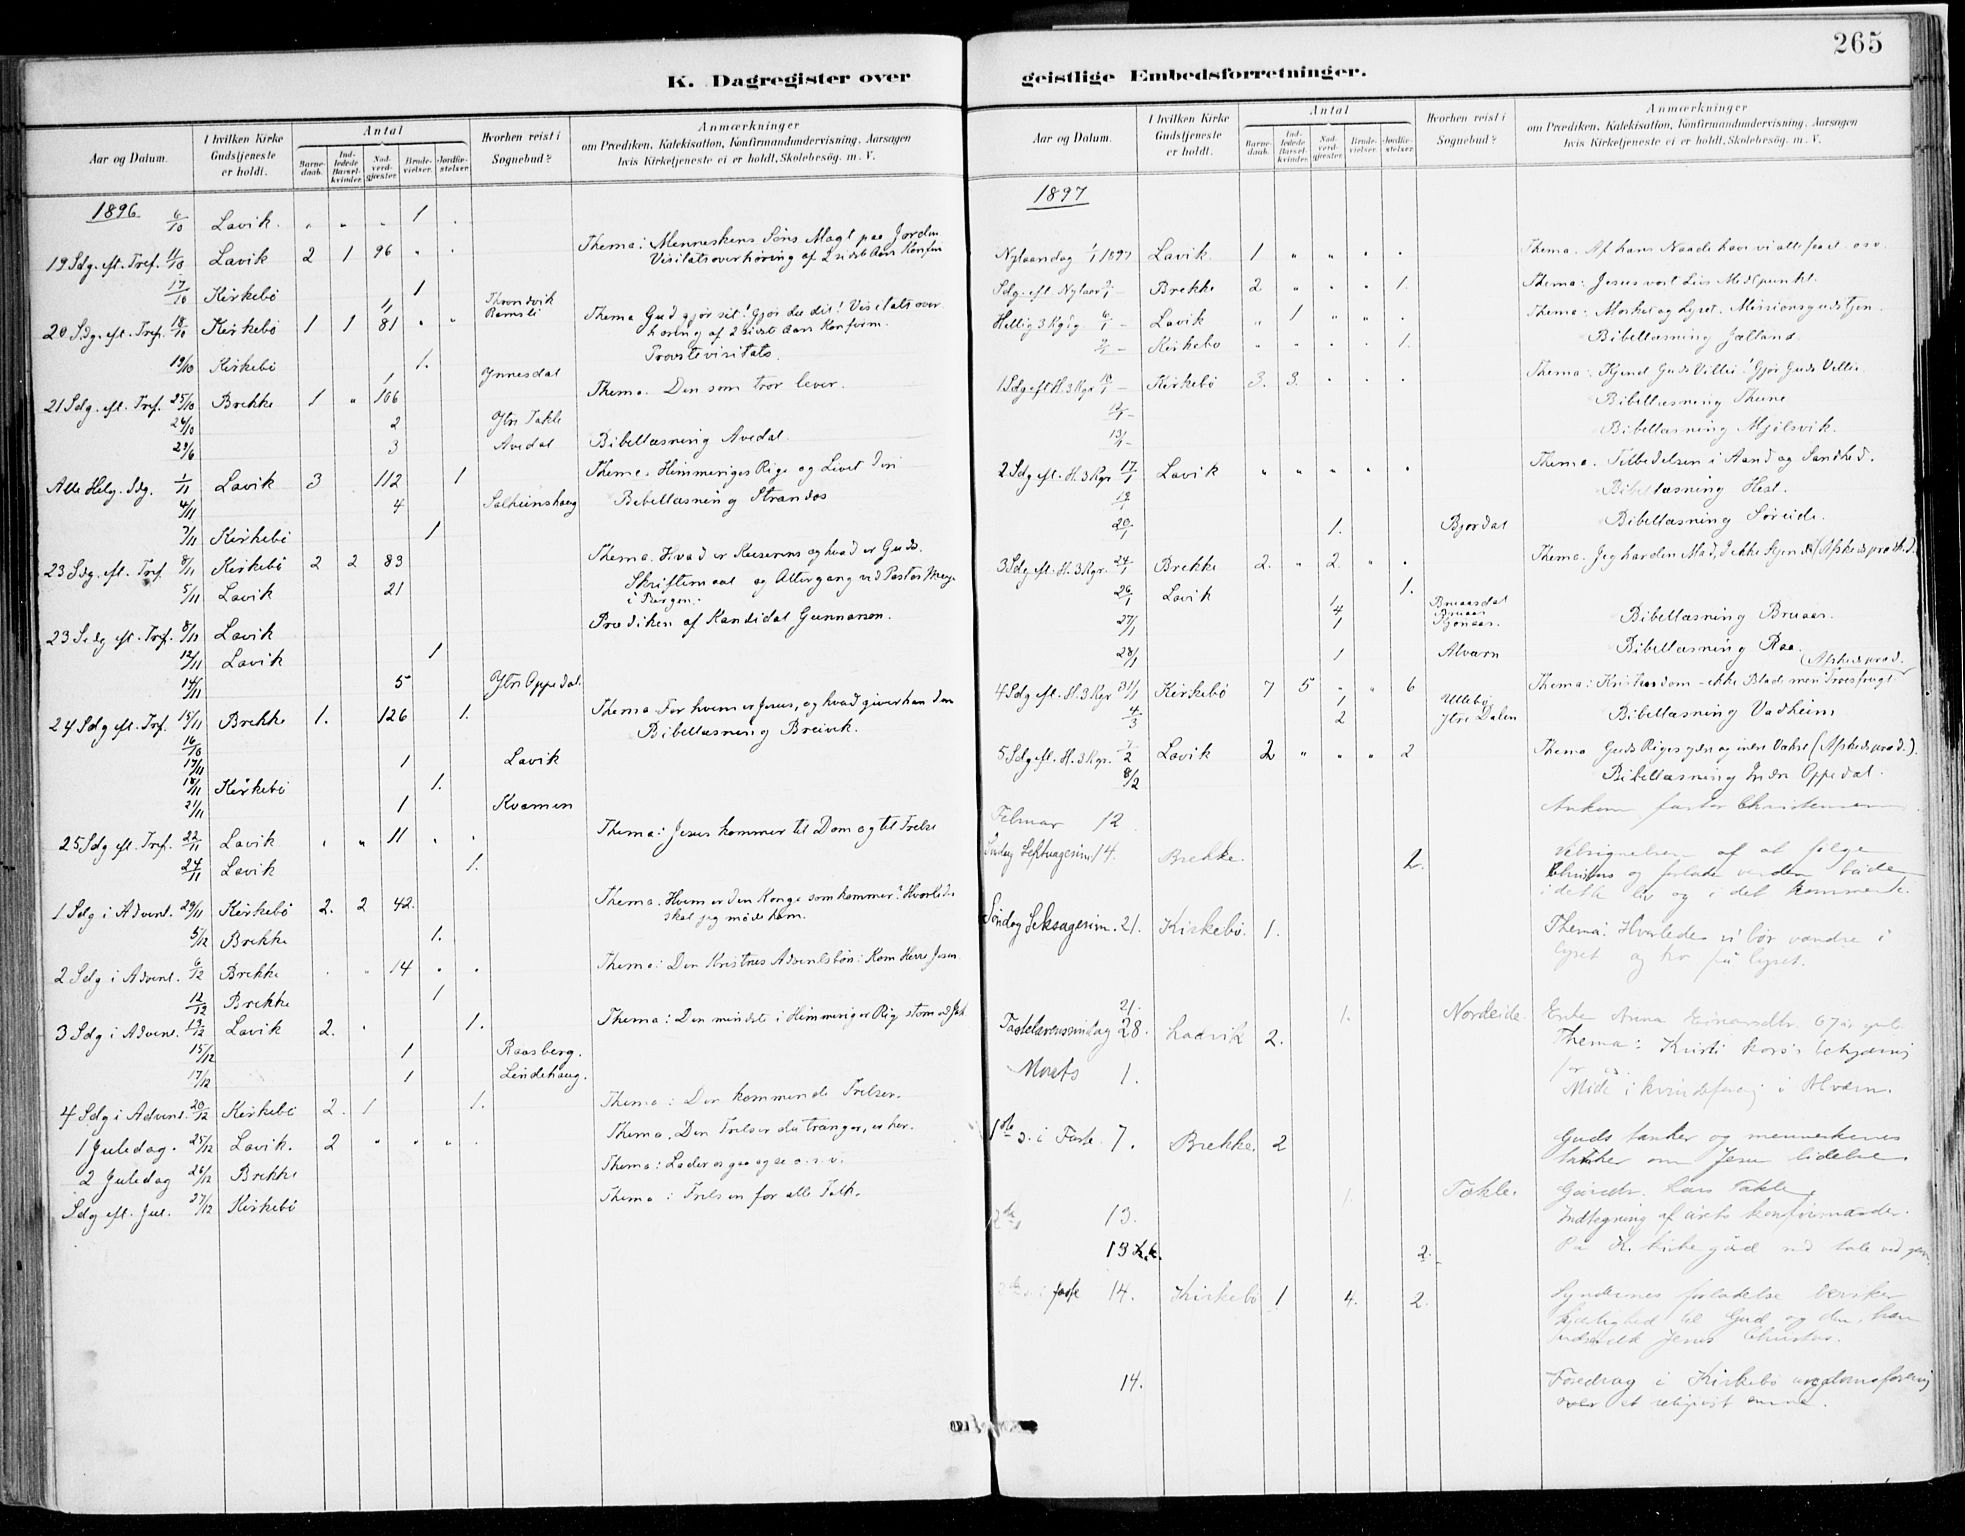 265
K. Dagregister over
geistlige Embedsforretninger.
Aar og Datum.
I hvilken Kirke Gudstjeneste er holdt.
Antal
Barnedaab.
Indledede Barselkvinder.
Nadverdgjester.
Brudevielser.
Jordfæstelser.
Hvorhen reist i Sognebud?
Anmærkninger
om Prædiken, Katekisation, Konfirmandundervisning, Aarsagen
hvis Kirketjeneste ei er holdt, Skolebesög. m. V.
1896 6/10 Lavik. " " " 1 .
19 Sdg. eft. Tref. 11/10 Lavik 2 1 96 " . Thema: Menneskens Søns Magt paa Jorden
Visitatsoverhøring af 2 sidste Aars Konfirm
17/10 Kirkebö 1
20 Sdg. eft. Tref. 18/10 Kirkebö 1 1 81 " " Thema Gud gjør sit! Gjør du dit! Visitatsover
høring af 2 sidste Aars Konfirm.
Provstevisitats.
19/10 Kirkebö 1. Ynnesdal
21 Sdg. eft. Tref. 25/10 Brekke 1 " 106 Thema. Den som tror lever.
26/10 2 Ytri Takle
29/6 3 Avedal Bibellæsning Avedal.
Alle Helg. Sdg. 1/11 Lavik 3 112 1 Thema. Himmeriges Rige og Livet deri
4/11 4 Salheimshaug Bibellæsning Strandos
7/11 Kirkebö 1
23 Sdg. eft. Tref. 8/11 Kirkebö 2 2 83 Thema. Hvad er Keiserens og hvad er Guds.
5/11 Lavik 21 Skriftemaal og Altergang ved Pastor
i Bergen.
23 Sdg eft. Tref. 8/11 Lavik Prædiken af Kandidat Gunnarson.
12/11 Lavik 1
14/11 5 Ytri Oppedal.
24 Sdg eft. Tref. 15/11 Brekke 1. 126 1. Thema For hvem er Jesus, og hvad giver han dem
16/10 Bibellæsning Breivik.
17/11 1 Lavik
18/11 Kirkebö 1.
21/11 1 Kvamen
25 Sdg eft. Tref. 22/11 Lavik . " 11 . . Thema: Jesus kommer til Dom og til Frelse
24/11 Lavik 1.
1 Sdg i Advent. 29/11 Kirkebö 2. 2 42. Thema. Hvem er den Konge som kommer? Hvorledes
skal jeg möde ham.
5/12 Brekke 1.
2 Sdg i Advent. 6/12 Brekke . " 14 . . Thema: Den Kristnes Adventsbön: Kom Herre Jesus
12/12 Brekke 1
3 Sdg i Advent. 13/12 Lavik 2. . 1. Thema: Den mindste i Himmeriges Rig større end Joh
15/12 1 Raasberg.
17/12 1 Lindehaug.
4 Sdg i Advent. 20/12 Kirkebö 2. 1 1. Thema: Den kommende Frelser.
1 Juledag. 25/12 Lavik. 2 " " " . Thema. Den Frelser du trænger, er her.
2 Juledag 26/12 Brekke Thema: Lader os gaa og se o.s.v.
Sdg eft. Jul. 27/12 Kirkebö Thema: Frelsen for alle Folk.
Aar og Datum.
I hvilken Kirke Gudstjeneste er holdt.
Antal
Barnedaab.
Indledede Barselkvinder.
Nadverdgjester.
Brudevielser.
Jordfæstelser.
Hvorhen reist i Sognebud?
Anmærkninger
om Prædiken, Katekisation, Konfirmandundervisning, Aarsagen
hvis Kirketjeneste ei er holdt, Skolebesög. m. V.
1897
Nytaarsdag 1/1 1897 Lavik 1 " " . . Thema. Af hans Naade have vi alle faaet o.s.v.
Sdg. eft Nytaar 3/1 – Brekke 2 " " " 1. Thema: Jesus vort Livs Midtpunkt.
Hellig 3 Kg dg 6/1 – Lavik " 1 " " . Thema: Mörket og Lyset. Missionsgudstjen.
7/1 – Kirkebö " " " " 1. Bibellæsning Jalland.
1 Sdg eft H. 3 Kgr 10/1 – Kirkebö 3. 3. " . . Thema: Kjend Guds Villie! Gjør Guds Villie
12/1 – Bibellæsning Thune
13/1 – Bibellæsning Mjölsvik.
2 Sdg eft. H. 3 Kgr 17/1 Lavik " " " " . Thema. Tilbedelsen i Aand og Sandhed.
19/1 Bibellæsning Hest.
20/1 1. Bjordal Bibellæsning Söreide.
3 Sdg eft. H. 3 Kgr. 24/1 Brekke 2. " 2. " . Thema. Jeg har den Mad, I ikke kjende (Afskedspræd.)
26/1 Lavik 1.
27/1 Bruaas Bibellæsning Bruaas.
28/1 1 Alværn Bibellæsning Raa.
(Afskedspræd.
4 Sdg eft. H. 3 Kgr 31/1 Kirkebö 7 5 " " 6 Thema: Kristendom – ikke Blade men Troesfrugt
4/3 2 Ytre Dalen Bibellæsning Vadheim
5 Sdg eft. H. 3 Kgr. 7/2 Lavik 2 " " " 2 Thema Guds Riges ydre og indre Vækst (Afskedspræd.)
8/2 Bibellæsning Indre Oppedal.
Februar 12. Ankom pastor Christensen
Söndag Septuagesima 14. Brekke. 2. Velsignelsen af at følge
Christus og forlade verden både
i dette liv og i det kommende.
Söndag Seksagesim. 21. Kirkebö. 1. Thema: Hvorledes vi bör vandre i
lyset og tro på lyset.
21. 1. Nordeide. Enke Anna Einarsdtr. 67 år gml.
Fastelavenssöndag 28. Ladvik 2. Thema: Kristi kors's betydning
for os.
Marts 1. Möde i kvindeforening i Alværn.
1ste S. i Faste. 7. Brekke. 2 Guds tanker og menneskenes
tanker om Jesu lidelse.
1. Takle. Gårdbr. Lars Takle
13. Indtegning af årets konfirmander.
13 2. På K. kirkegård
i faste 14. Kirkebö 1 4. 2. Syndernes forladelse virker
kjærlighed til Gud og den, han
udsendte Jesus Christus.
14. Foredrag i Kirkebö ungdomsforening
over et religiøst emne.